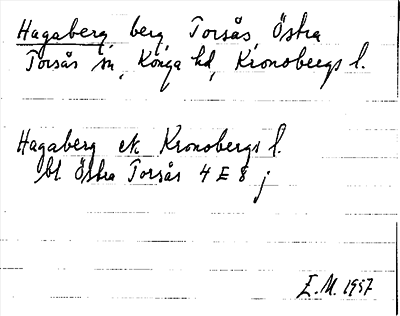 Hagaberg, berg, Torsås, Östra
Torsås sn, Konga hd, Kronobergs l.
Hagaberg ek Kronobergs l.
bl Östra Torsås 4 E 8 j
E.M. 1957